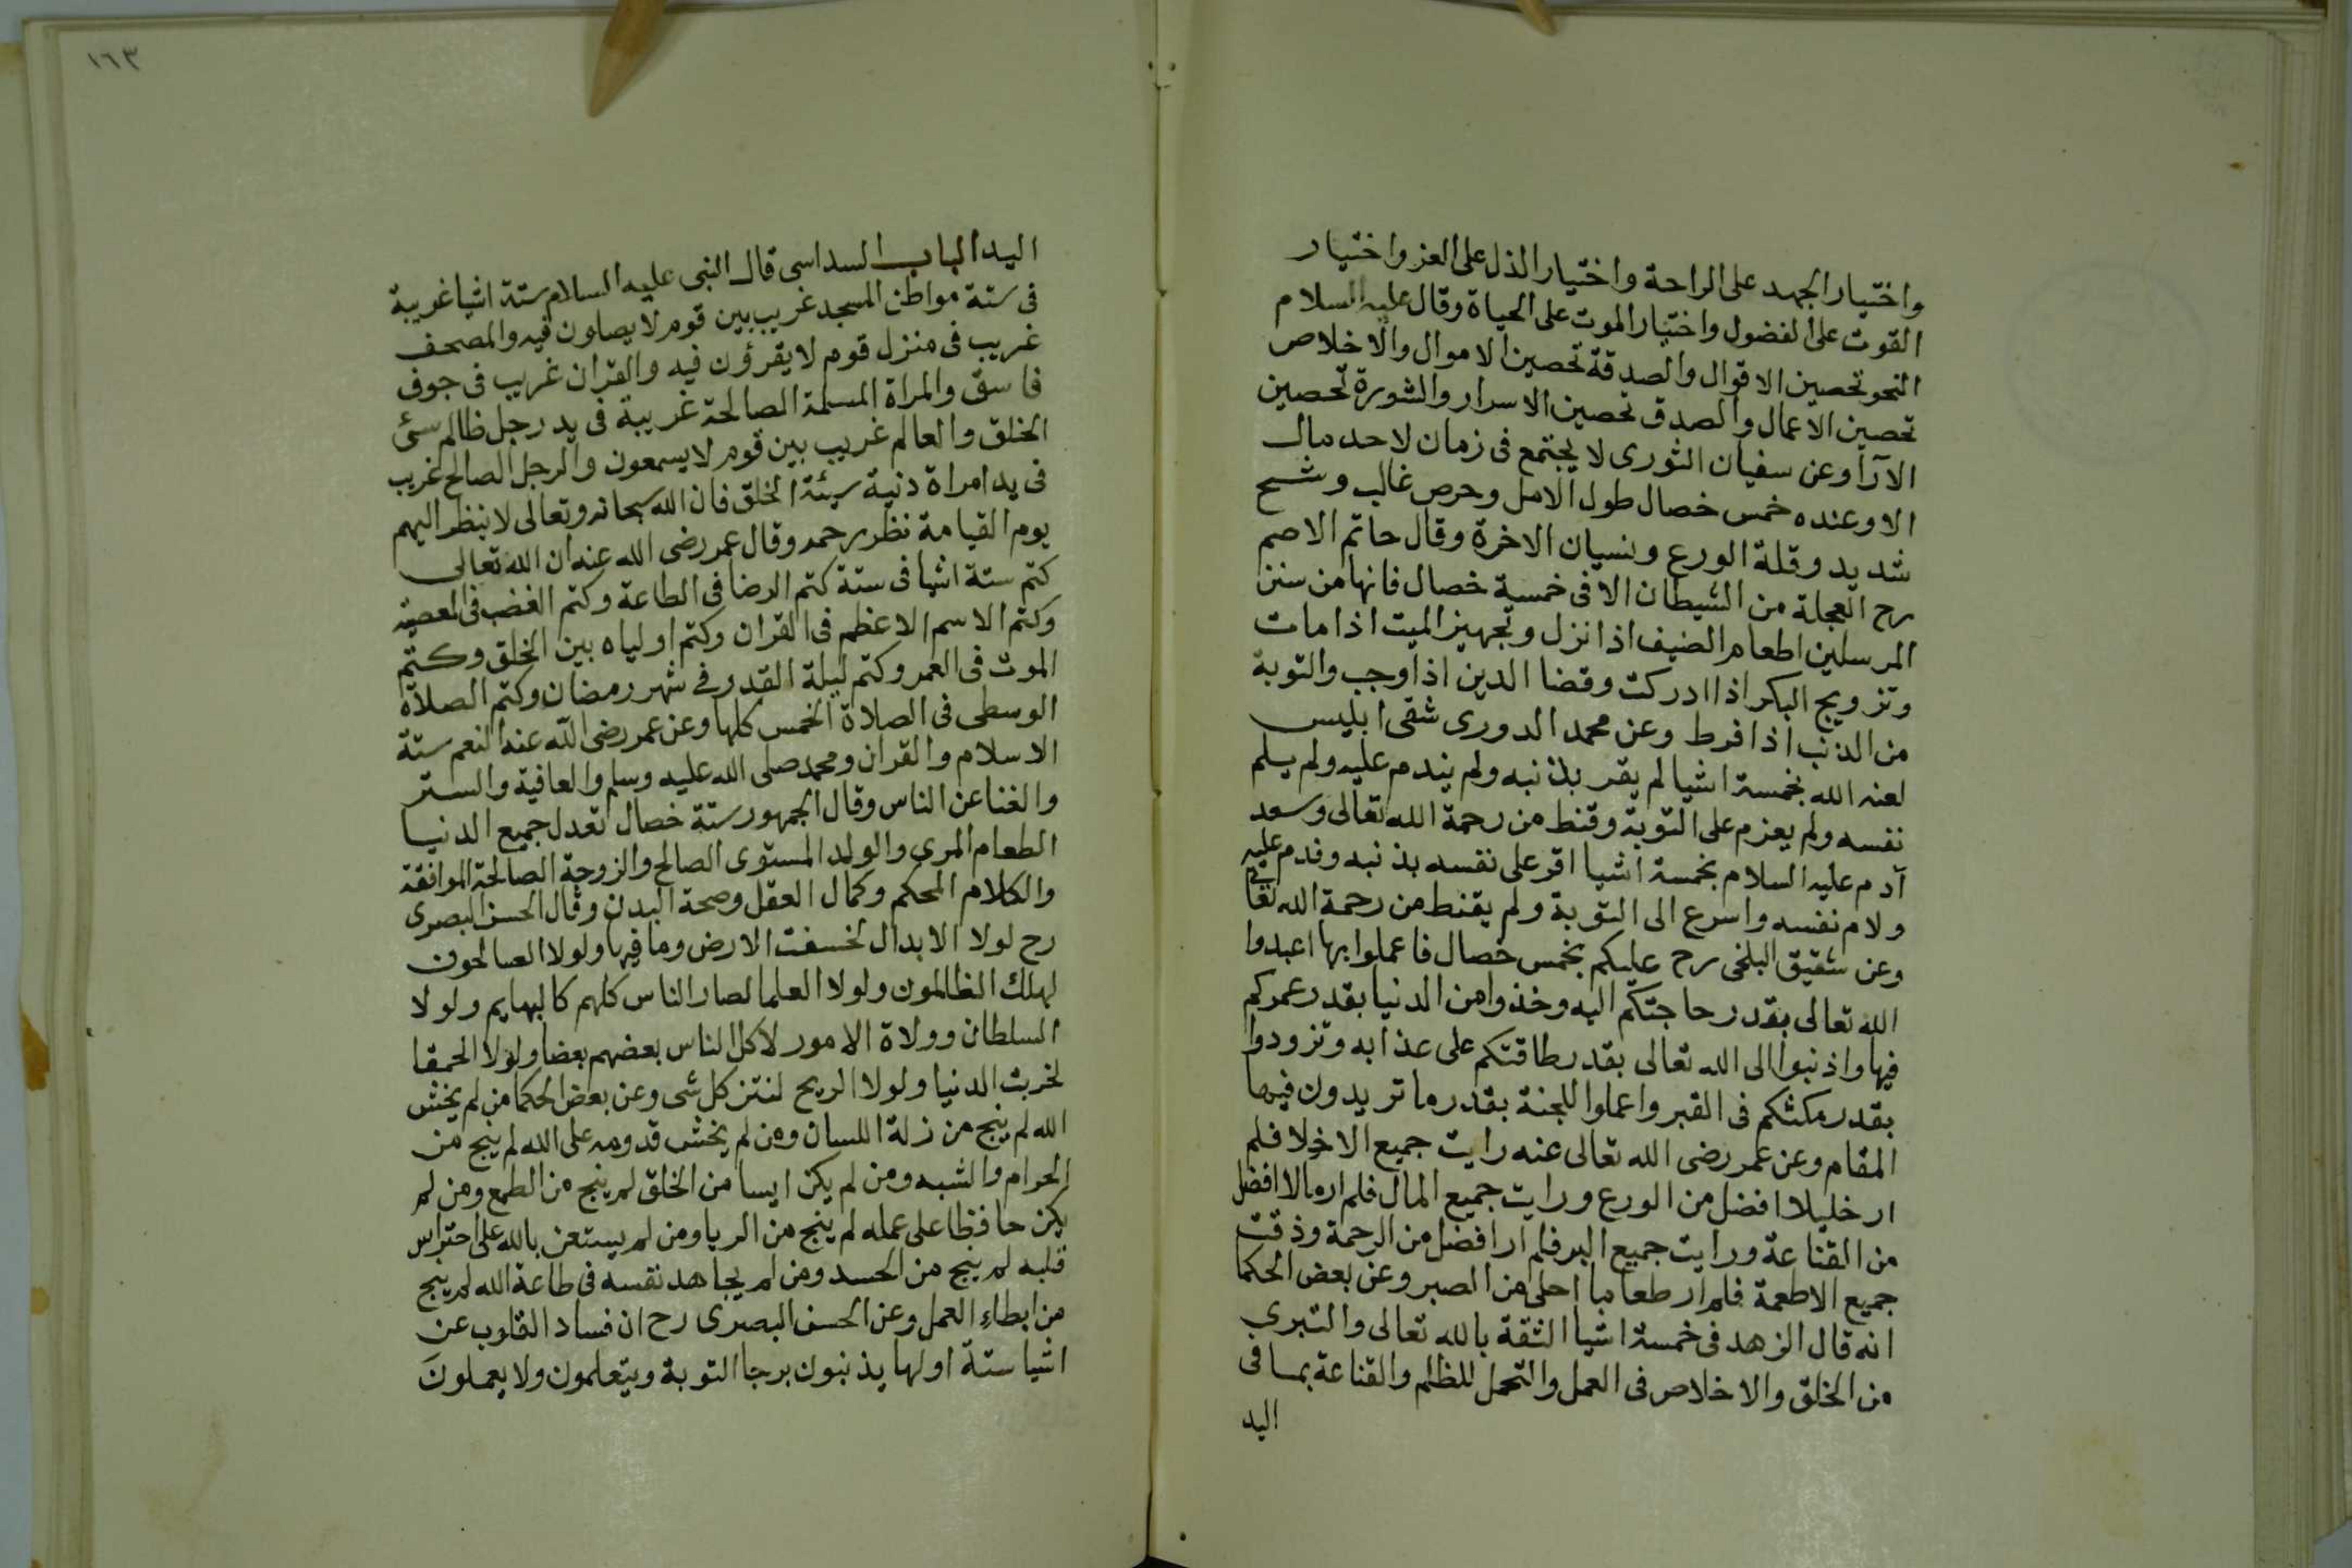 واختيار الجهد على الراحة واختيار الذل على العز واختيار
القوت على الفضول واختيار الموت على الحياة وقال عليه السلام
النجو تحصين الاقوال والصدقة تحصين الاموال والاخلاص
تحصين الاعمال والصدق تحصين الاسرار والشورة تحصين
الآرا وعن سفيان الثورى لا يجتمع فى زمان لاحد مال
الا وعنده خمس خصال طول الامل وحرص غالب وشح
شديد وقلة الورع ونسيان الاخرة وقال حاتم الاصم
رح العجلة من الشيطان الا فى خمسة خصال فانها من سنن
المرسلين اطعام الضيف اذا نزل وتجهيز الميت اذا مات
وتزويج البكر اذا ادركت وقضا الدين اذا وجب والتوبة
من الذنب اذا فرط وعن محمد الدورى شقى ابليس
لعنه الله بخمسة اشيا لم يقر بذنبه ولم يندم عليه ولم يلم
نفسه ولم يعزم على التوبة وقنط من رحمة الله تعالى وسعد
آدم عليه السلام بخمسة اشيا اقر على نفسه بذنبه وندم عليه
ولام نفسه واسرع الى التوبة ولم يقنط من رحمة الله تعالى
وعن شقيق البلخى رح عليكم بخمس خصال فاعملوا بها اعبدوا
الله تعالى بقدر حاجتكم اليه وخذوا من الدنيا بقدر عمركم
فيها واذنبوا الى الله تعالى بقدر طاقتكم على عذابه وتزودوا
بقدر مكثكم فى القبر واعملوا للجنة بقدر ما تريدون فيها
المقام وعن عمر رضى الله تعالى عنه رايت جميع الاخلا فلم
ار خليلا افضل من الورع ورايت جميع المال فلم ار مالا افضل
من القناعة ورايت جميع البر فلم ار افضل من الرحمة وذقت
جميع الاطعمة فلم ار طعاما احلى من الصبر وعن بعض الحكما
انه قال الزهد فى خمسة اشيا الثقة بالله تعالى والتبرى
من الخلق والاخلاص فى العمل والتحمل للظلم والقناعة بما فى
اليد
١٦٣
اليد الباب السداسى قال النبى عليه السلام ستة اشيا غريبة
فى ستة مواطن المسجد غريب بين قوم لا يصلون فيه والمصحف
غريب فى منزل قوم لا يقرؤن فيه والقران غريب فى جوف
فاسق والمراة المسلمة الصالحة غريبة فى يد رجل ظالم سئ
الخلق والعالم غريب بين قوم لا يسمعون والرجل الصالح غريب
فى يد امراة دنية سيئة الخلق فان الله سبحانه وتعالى لا ينظر اليهم
يوم القيامة نظر رحمه وقال عمر رضى الله عنه ان الله تعالى
كتم ستة اشيا فى ستة كتم الرضا فى الطاعة وكتم الغضب فى المعصية
وكتم الاسم الاعظم فى القران وكتم اولياه بين الخلق وكتم
الموت فى العمر وكتم ليلة القدر فى شهر رمضان وكتم الصلاة
الوسطى فى الصلاة الخمس كلها وعن عمر رضى الله عنه النعم ستة
الاسلام والقران ومحمد صلى الله عليه وسلم والعافية والستر
والغنا عن الناس وقال الجمهور ستة خصال تعدل جميع الدنيا
الطعام المرى والولد المستوى الصالح والزوجة الصالحة الموافقة
والكلام المحكم وكمال العقل وصحة البدن وقال الحسن البصرى
رح لولا الابدال لخسفت الارض وما فيها ولولا الصالحون
لهلك الظالمون ولولا العلما لصار الناس كلهم كالبهايم ولولا
السلطان وولاة الامور لاكل الناس بعضهم بعضا ولولا الحمقا
لخربت الدنيا ولولا الريح لنتن كل شى وعن بعض الحكما من لم يخش
الله لم ينج من زلة اللسان ومن لم يخش قدومه على الله لم ينج من
الحرام والشبه ومن لم يكن ايسا من الخلق لم ينج من الطمع ومن لم
يكن حافظا على عمله لم ينج من الريا ومن لم يستعن بالله على احتراس
قلبه لم ينج من الحسد ومن لم يجاهد نفسه فى طاعة الله لم ينج
من ابطاء العمل وعن الحسن البصرى رح ان فساد القلوب عن
اشيا ستة اولها يذنبون برجا التوبة ويتعلمون ولا يعملون